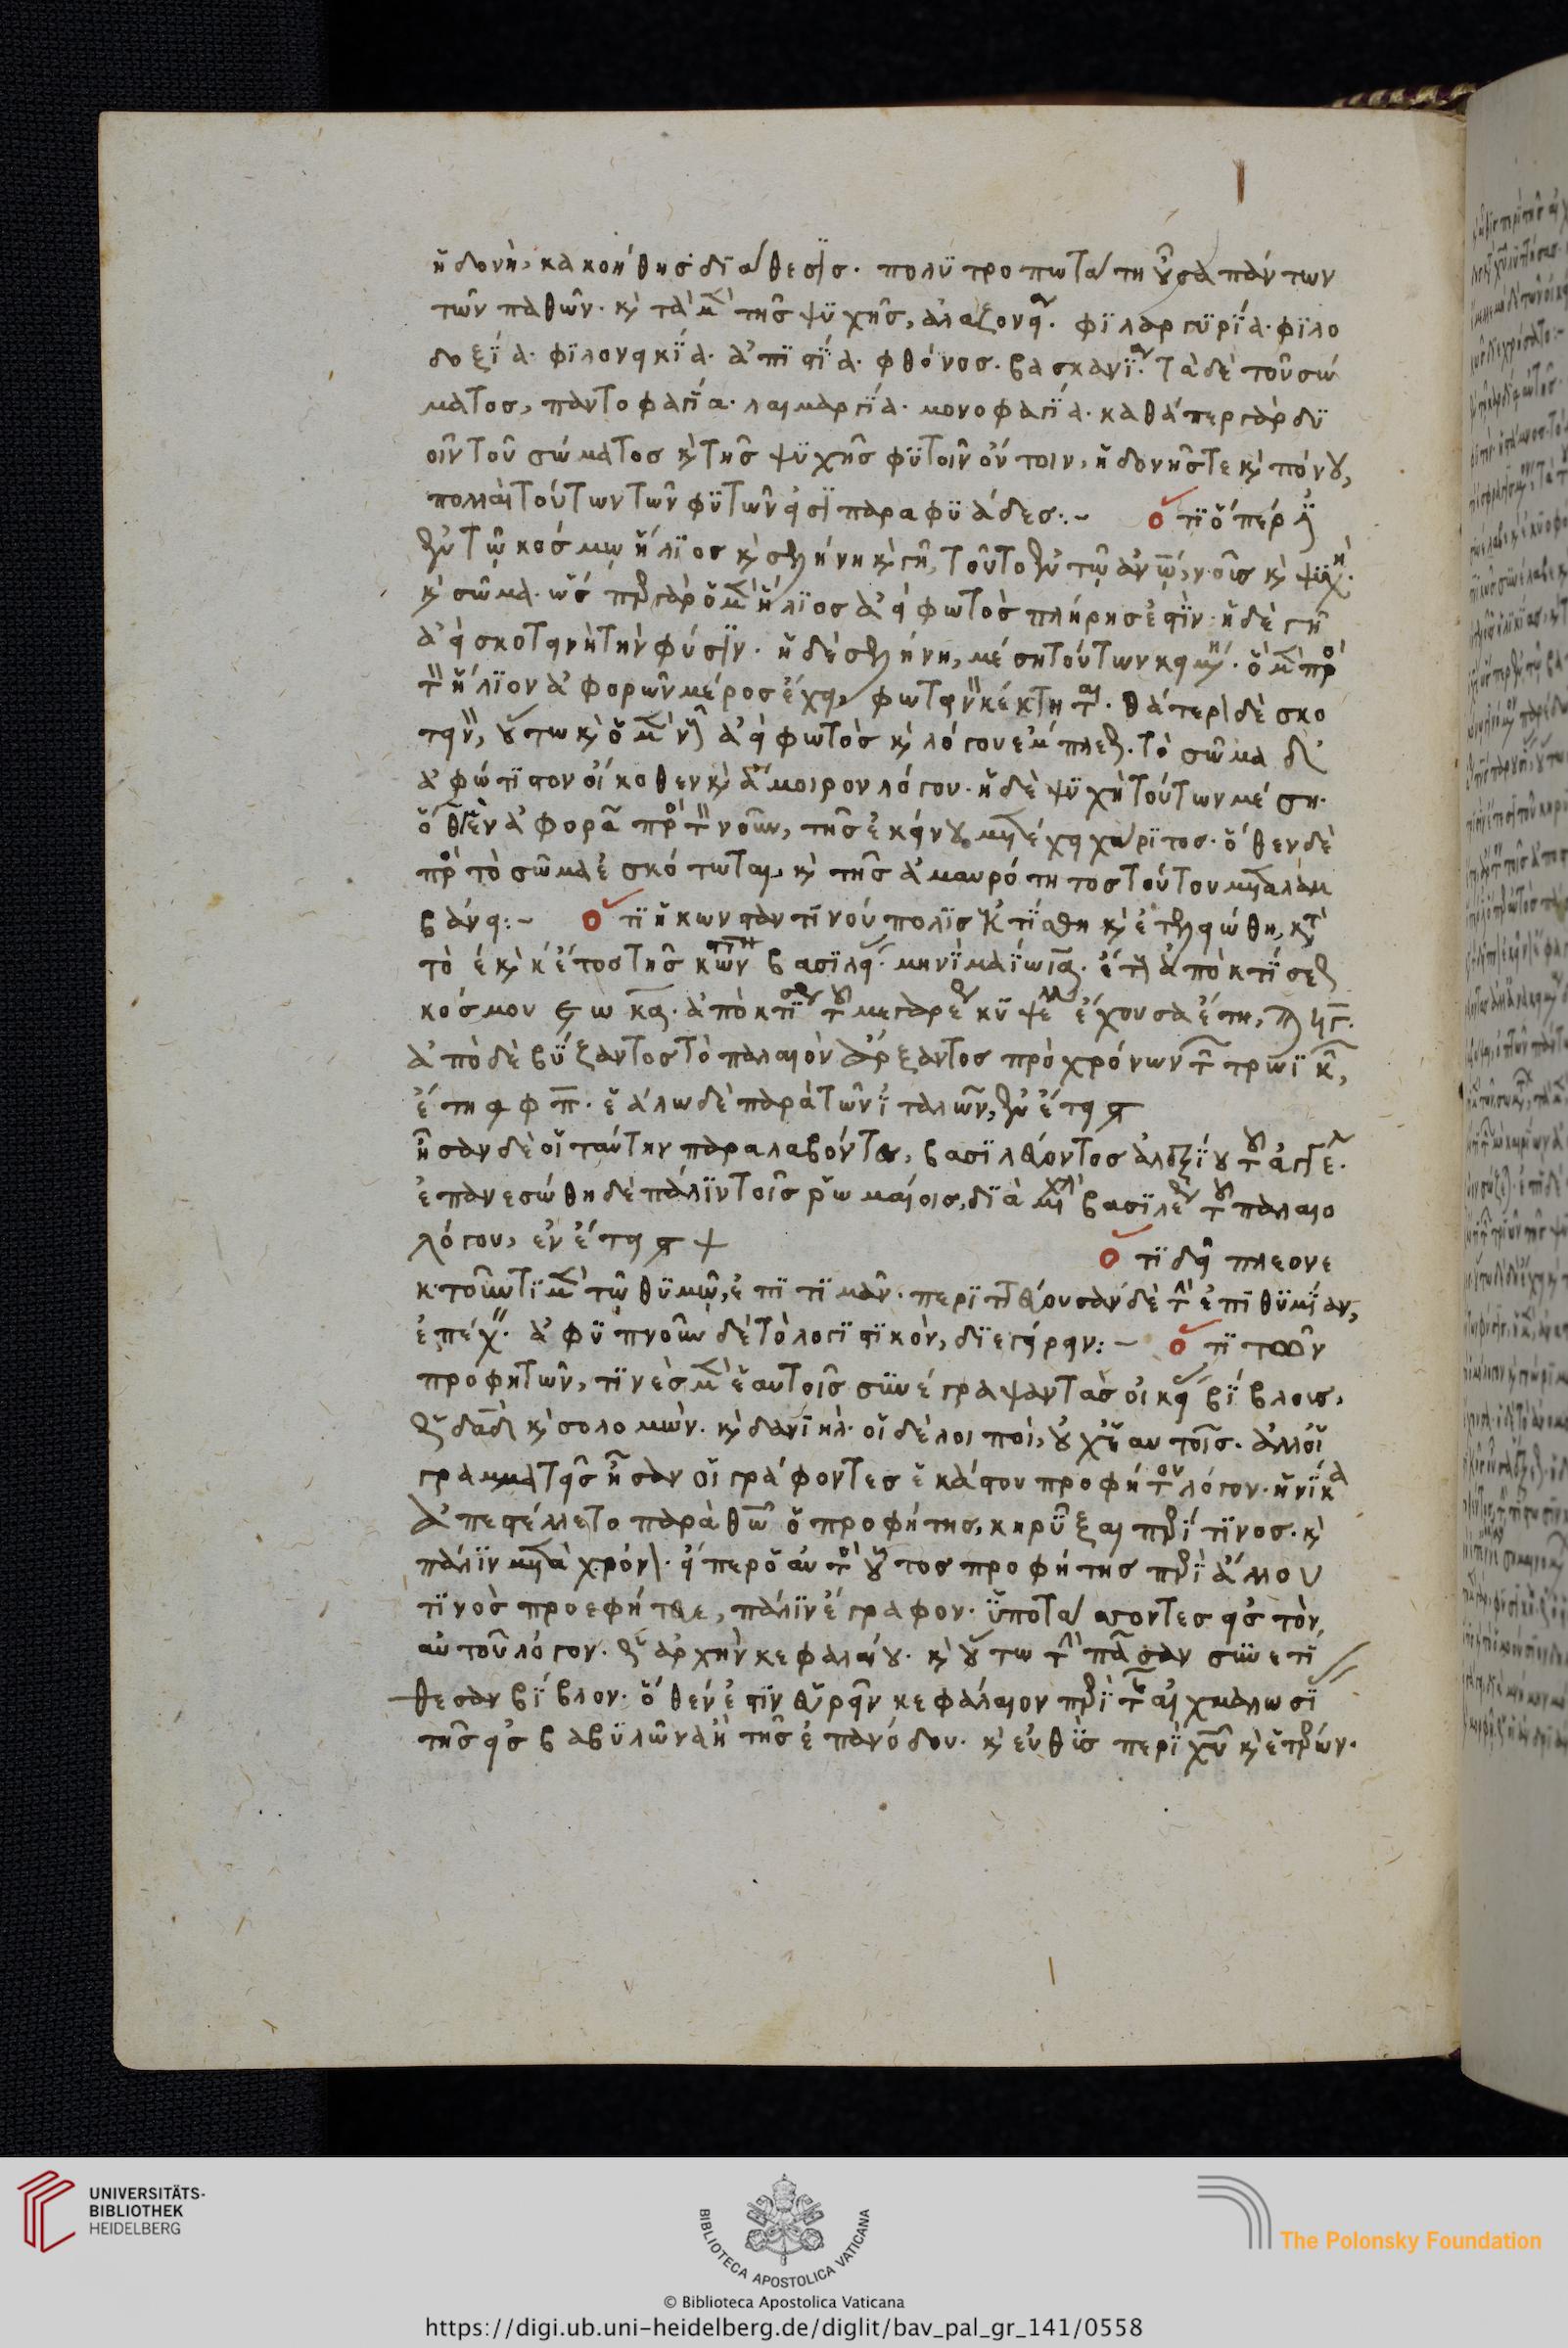 ἡδονὴ, κακοήθης διάθεσϊς. πολϋτροπωτάτη οὖσα πάντων
τῶν παθῶν. κ τὰ μὲν τῆς ψϋχῆς, ἀλαζονεία. φϊλαργϋρΐα. φϊλο
δοξΐα. φϊλονεικΐα. ἀπϊστΐα. φθόνος. βασκανϊα. τὰ δὲ τοῦ σώ
ματος, παντοφαγΐα. λαιμαργΐα. μονοφαγΐα. καθάπερ γὰρ δϋ
οῖν τοῦ σώματος κ τῆς ψϋχῆς φϋτοῖν ὄντοιν, ἡδονῆς τε κ πόνου,
πολλαὶ τούτων τῶν φϋτῶν εἰσϊ παραφϋάδες:~ ὅτϊ ὅπέρ
ἐν τῷ κόσμῳ ἥλϊος κ σελήνη κ γῆ, τοῦτο ἐν τῷ ἀνω, νοῦς κ ψϋχὴ.
κ σῶμα. ὥσπερ γὰρ ὁ μὲν ἥλϊος ἀεὶ φωτὸς πλήρης ἐστϊν. ἡ δὲ γῆ
ἀεὶ σκοτεινὴ τὴν φύσϊν. ἡ δὲ σελήνη, μέση τούτων
τὸν ἥλϊον ἀφορῶν μέρος ἔχει, φωτεινὸν κέκτηται. θάτερον δὲ σκο
τεινὸν, οὕτω κ ὁ μὲν νοῦς ἀεὶ φωτὸς κ λόγου ἔμπλεως. τὸ σῶμα δὲ
ἀφώτϊστον οἴκοθεν κ ἄμοιρον λόγου. ἡ δὲ ψϋχὴ τούτων μέση.
ὅθεν μὲν ἀφορᾶ πρὸς τὸν νοῦν, τῆς ἐκείνου μετέχει χάρϊτος. ὅθεν δὲ
πρὸς τὸ σῶμα ἐσκότωται, κ τῆς ἀμαυρότητος τούτου μεταλαμ
βάνει:~ ὅτϊ ἡ κωνσταντΐνού πολϊς ἐκτΐσθη κ ἐτελειώθη, κατὰ
τὸ ἑ κ κ ἔτος τῆς κων βασϊλείας. μηνϊ μαΐω ια. ἔτη ἀπὸ κτΐσεως
κόσμου ςωκα. ἀπὸ κτΐσεως τοῦ μεγαρέως κϋψέλου ἔχουσα ἔτη,
ἀπὸ δὲ βϋζαντος τὸ παλαιὸν ἄρξαντος πρὸ χρόνων τῶν τρωϊκῶν,
ἔτη φπ. ἑάλω δὲ παρὰ τῶν ἰταλῶν, ἐν ἔτει
ἦσαν δὲ οἱ ταύτην παραλαβόντες, βασϊλεύοντος ἀλεξΐου τοῦ ἀγγέλου.
ἐπανεσώθη δὲ πάλϊν τοῖς ῥωμαίοις, δϊὰ μιχαὴλ βασϊλέως τοῦ παλαιο
λόγου, ἐν ἔτει ϛψ ὅτϊ δεῖ πλεονε
κτοῦντϊ μὲν τῷ θϋμῷ, ἐπϊτϊμᾶν. περϊττεύουσαν δὲ τὴν ἐπϊθϋμΐαν,
ἐπέχειν. ἀφϋπνοῦν δὲ τὸ λογϊστϊκὸν, δϊεγείρειν:~ ὅτϊ τῶν
προφητῶν, τϊνὲς μὲν ἑαυτοῖς σϋνέγραψαν τὰς οἰκείας βΐβλους,
ὡς δαδ κ σολομὼν. κ δανϊηλ. οἱ δὲ λοιποὶ, οὐχ ἑαυτοῖς. ἀλλ οἱ
γραμματεῖς ἦσαν οἱ γράφοντες ἑκάστου προφήτου λόγον. ἡνΐκα
ἀπεστέλλετο παρὰ θῦ ὁ προφήτης, κηρῦξαι περΐ τϊνος. κ
πάλϊν μετὰ χρόνον. εἴπερ ὁ αὐτὸς οὗτος προφήτης περϊ ἄλλου
τϊνὸς προεφήτευε, πάλϊν ἔγραφον. ὑποτάσσοντες εἰς τὸν
αὐτοῦ λόγον. ὡς ἀρχὴν κεφαλαίου. κ οὕτω τὴν πᾶσαν σϋνετΐ
θεσαν βΐβλον. ὅθεν ἐστϊν εὑρεῖν κεφάλαιον περϊ τῆς αἰχμαλωσϊας
τῆς εἰς βαβϋλῶνα ἢ τῆς ἐπανόδου. κ εὐθϋς περϊ χῦ κ ἑτέρων.
UNIVERSITÄTS-
BIBLIOTHEK
HEIDELBERG
BIBLIOTECA APOSTOLICA VATICANA
The Polonsky Foundation
© Biblioteca Apostolica Vaticana
https://digi.ub.uni-heidelberg.de/diglit/bav_pal_gr_141/0558